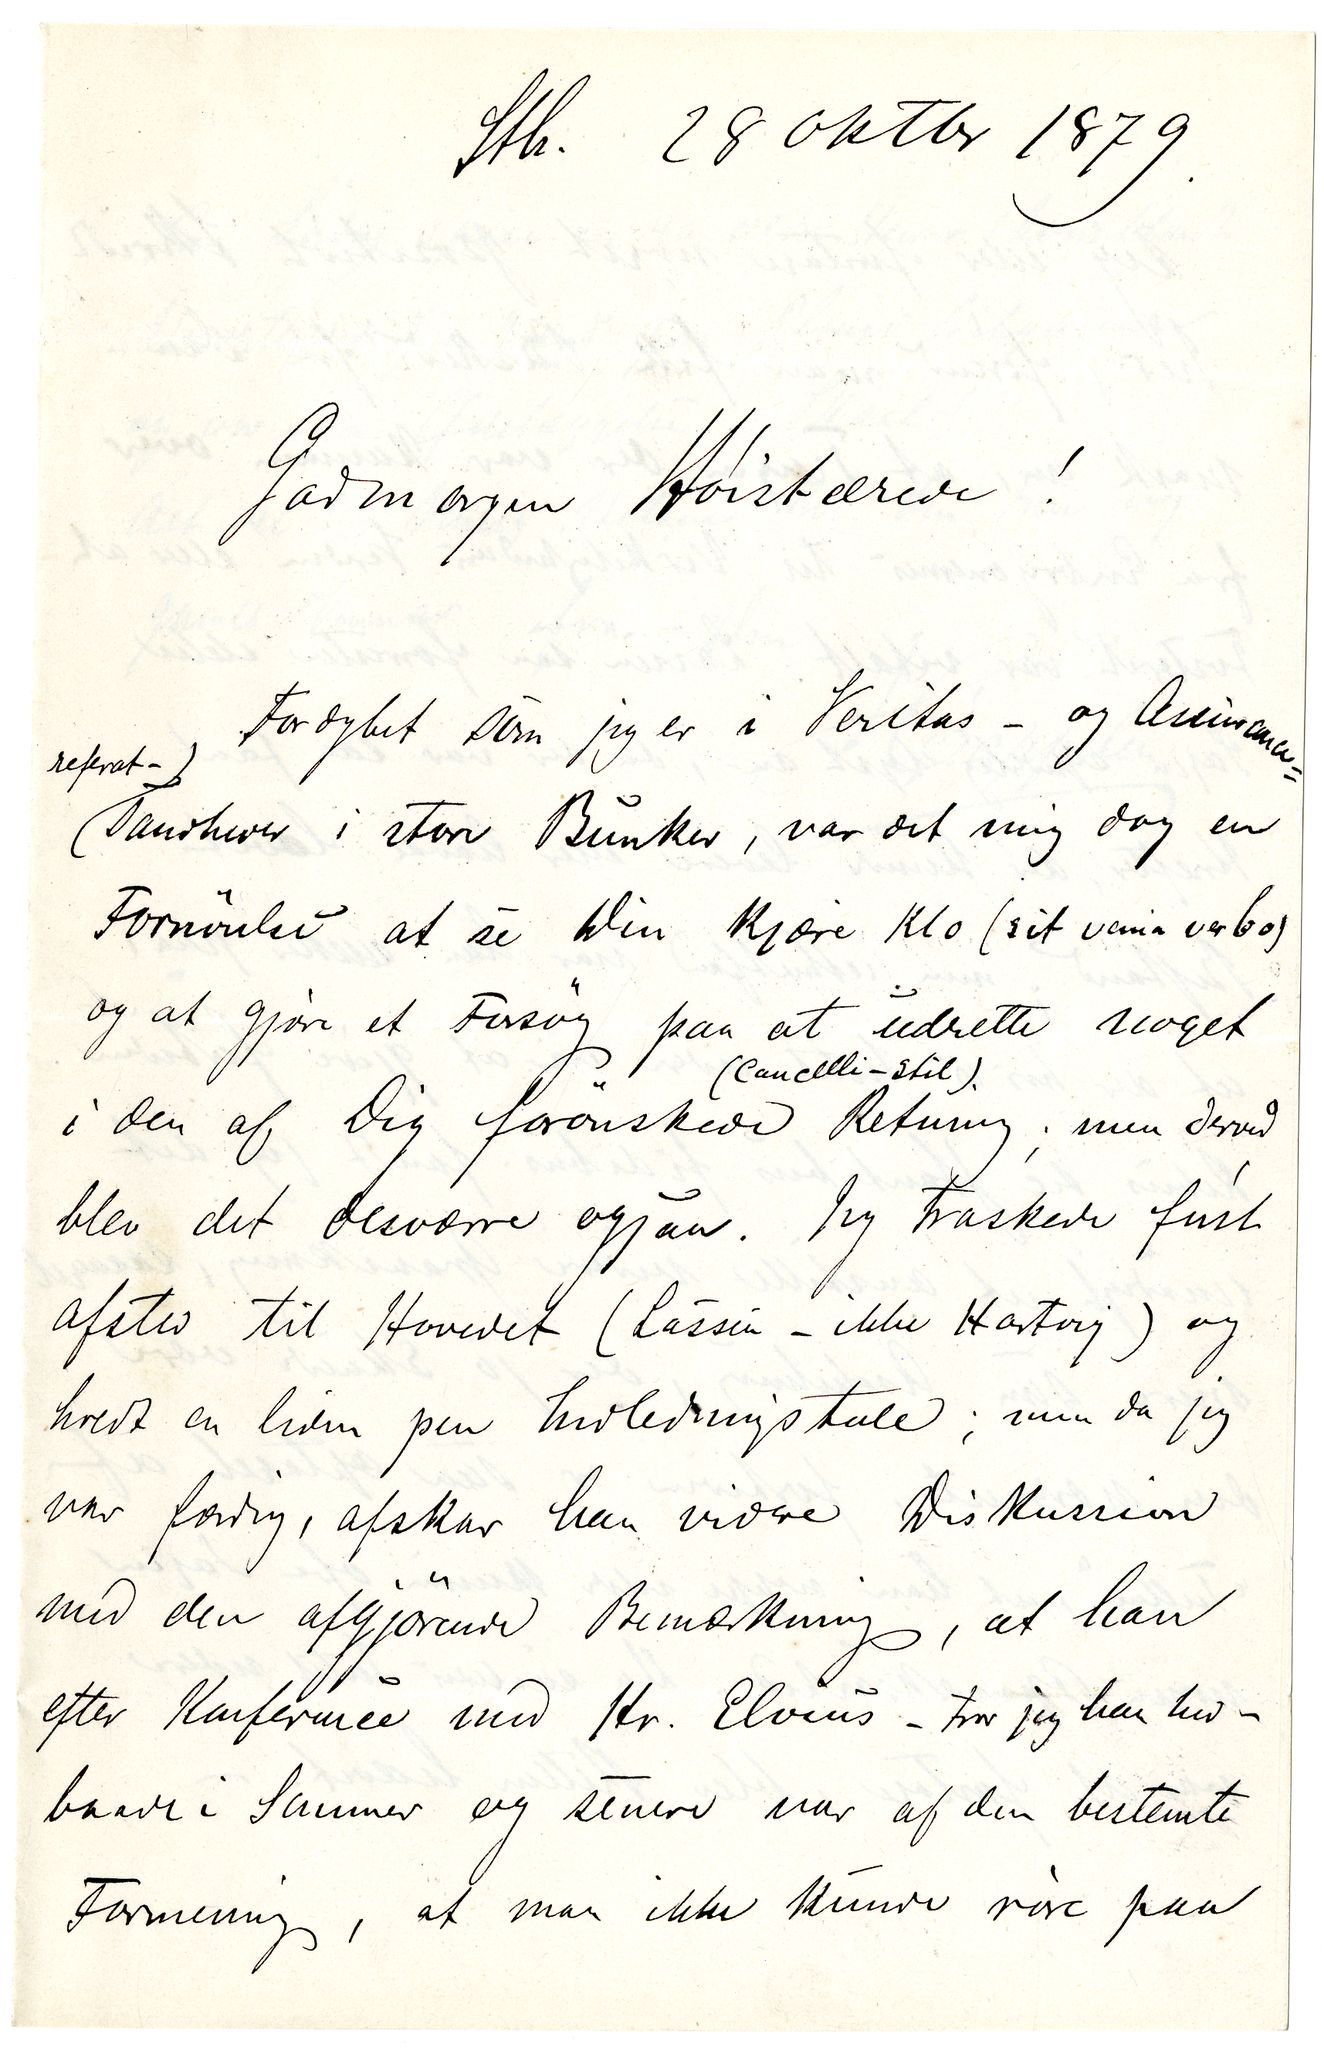 Sth. 28 oktbr 1879.
Godmorgen Höistærede!
Fordybet som jeg er i Veritas - og Assurance=
referat-)
(Tandhver i store Bunker, var det mig dog en
Fornöielse at se Din kjære Klo (sit venia verbo)
og at gjöre et Forsög paa at udrette noget
(Cancelli-stil).
i den af Dig forönskede Retning; men derved
blev det desværre ogsaa. Jeg traskede först
afsted til Hovedet (Lassen - ikke Hartvig) og
holdt en liden pen Indledningstale; men da jeg
var færdig, afskar han videre Diskussion
med den afgjörende Bemærkning, at han
efter Konference med Hr. Elvius - tror jeg han hed -
baade i Sommer og senere var af den bestemte
Formening, at man ikke kunde röre paa